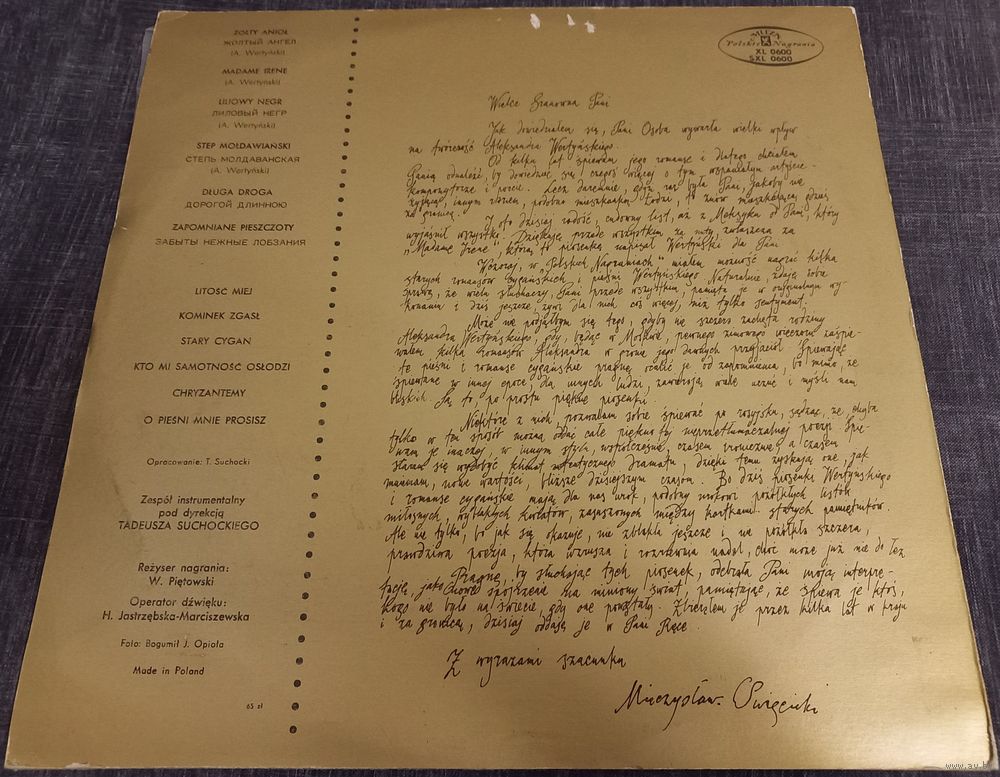 ŻÓŁTY ANIOŁ
ЖОЛТЫЙ АНГЕЛ
(A. Wertyński)
MADAME IRENE
(A. Wertyński)
LILIOWY NEGR
ЛИЛОВЫЙ НЕГР
(A. Wertyński)
STEP MOŁDAWIAŃSKI
СТЕПЬ МОЛДАВАНСКАЯ
(A. Wertyński)
DŁUGA DROGA
ДОРОГОЙ ДЛИННОЮ
ZAPOMNIANE PIESZCZOTY
ЗАБЫТЫ НЕЖНЫЕ ЛОБЗАНИЯ
LITOŚĆ MIEJ
KOMINEK ZGASŁ
STARY CYGAN
KTO MI SAMOTNOŚĆ OSŁODZI
CHRYZANTEMY
O PIEŚNI MNIE PROSISZ
Opracowanie: T. Suchocki
Zespół instrumentalny
pod dyrekcją
TADEUSZA SUCHOCKIEGO
Reżyser nagrania:
W. Piętowski
Operator dźwięku:
H. Jastrzębska-Marciszewska
Foto: Bogumił J. Opioła
Made in Poland
65 zł
MUZA
Polskie Nagrania
XL 0600
SXL 0600
Wielce Szanowna Pani
Jak dowiedziałem się, Pani Osoba wywarła wielki wpływ
na twórczość Aleksandra Wertyńskiego.
Od kilku lat śpiewam jego romanse i dlatego chciałem
Panią odnaleźć, by dowiedzieć się czegoś więcej o tym wspaniałym artyście
kompozytorze i poecie. Lecz daremnie, gdyż raz była Pani, jakoby nie
żyjącą, innym razem, podobno mieszkanką Łodzi, to znów mieszkającą gdzieś
za granicą.
I oto dzisiaj radość, cudowny list, aż z Meksyku od Pani, który
wyjaśnił wszystko. Dziękuję przede wszystkim za nuty, zwłaszcza za
„Madame Irene", którą to piosenkę napisał Wertyński dla Pani
Wczoraj, w „Polskich Nagraniach" miałem możność nagrać kilka
starych romansów cygańskich i pieśni Wertyńskiego. Naturalnie, zdaję sobie
sprawę, że wielu słuchaczy, Pani przede wszystkim, pamięta je w oryginalnym wy-
konaniu i dziś jeszcze, żywi dla nich coś więcej, niż tylko sentyment.
Może nie podjąłbym się tego, gdyby nie szczera zachęta rodziny
Aleksandra Wertyńskiego, gdy, będąc w Moskwie, pewnego zimowego wieczoru zaśpie-
wałem kilka romansów Aleksandra w gronie jego dawnych przyjaciół. Śpiewając
te pieśni i romanse cygańskie pragnę ocalić je od zapomnienia, bo mimo, że
śpiewane w innej epoce, dla innych ludzi, zawierają wiele uczuć i myśli nam
bliskich. Są to, po prostu piękne piosenki.
Niektóre z nich, pozwalam sobie śpiewać po rosyjsku, sądząc, że chyba
tylko w ten sposób można oddać całe piękno tej nieprzetłumaczalnej poezji. Śpie-
wam je inaczej, w innym stylu, współcześnie, czasem ironicznie, a czasem
staram się wydobyć klimat autentycznego dramatu, dzięki temu zyskają one, jak
mniemam, nowe wartości, bliższe dzisiejszym czasom. Bo dziś piosenki Wertyńskiego
i romanse cygańskie mają dla nas urok, podobny urokowi pożółkłych listów
miłosnych, wybladłych kwiatów, zasuszonych między kartkami starych pamiętników.
Ale nie tylko, bo jak się okazuje, nie zblakła jeszcze i nie pożółkła szczera,
prawdziwa poezja, która wzrusza i rozrzewnia nadal, choć może już nie do łez
Pragnę, by słuchając tych piosenek, odebrała Pani moją interpre-
tację jako spojrzenie na miniony świat, pamiętając, że śpiewa je ktoś,
kogo nie było na świecie, gdy one powstały. Zbierałem je przez kilka lat w kraju
i za granicą, dzisiaj oddaję je w Pani Ręce.
Z wyrazami szacunku
Mieczysław Święcicki
www.au.b